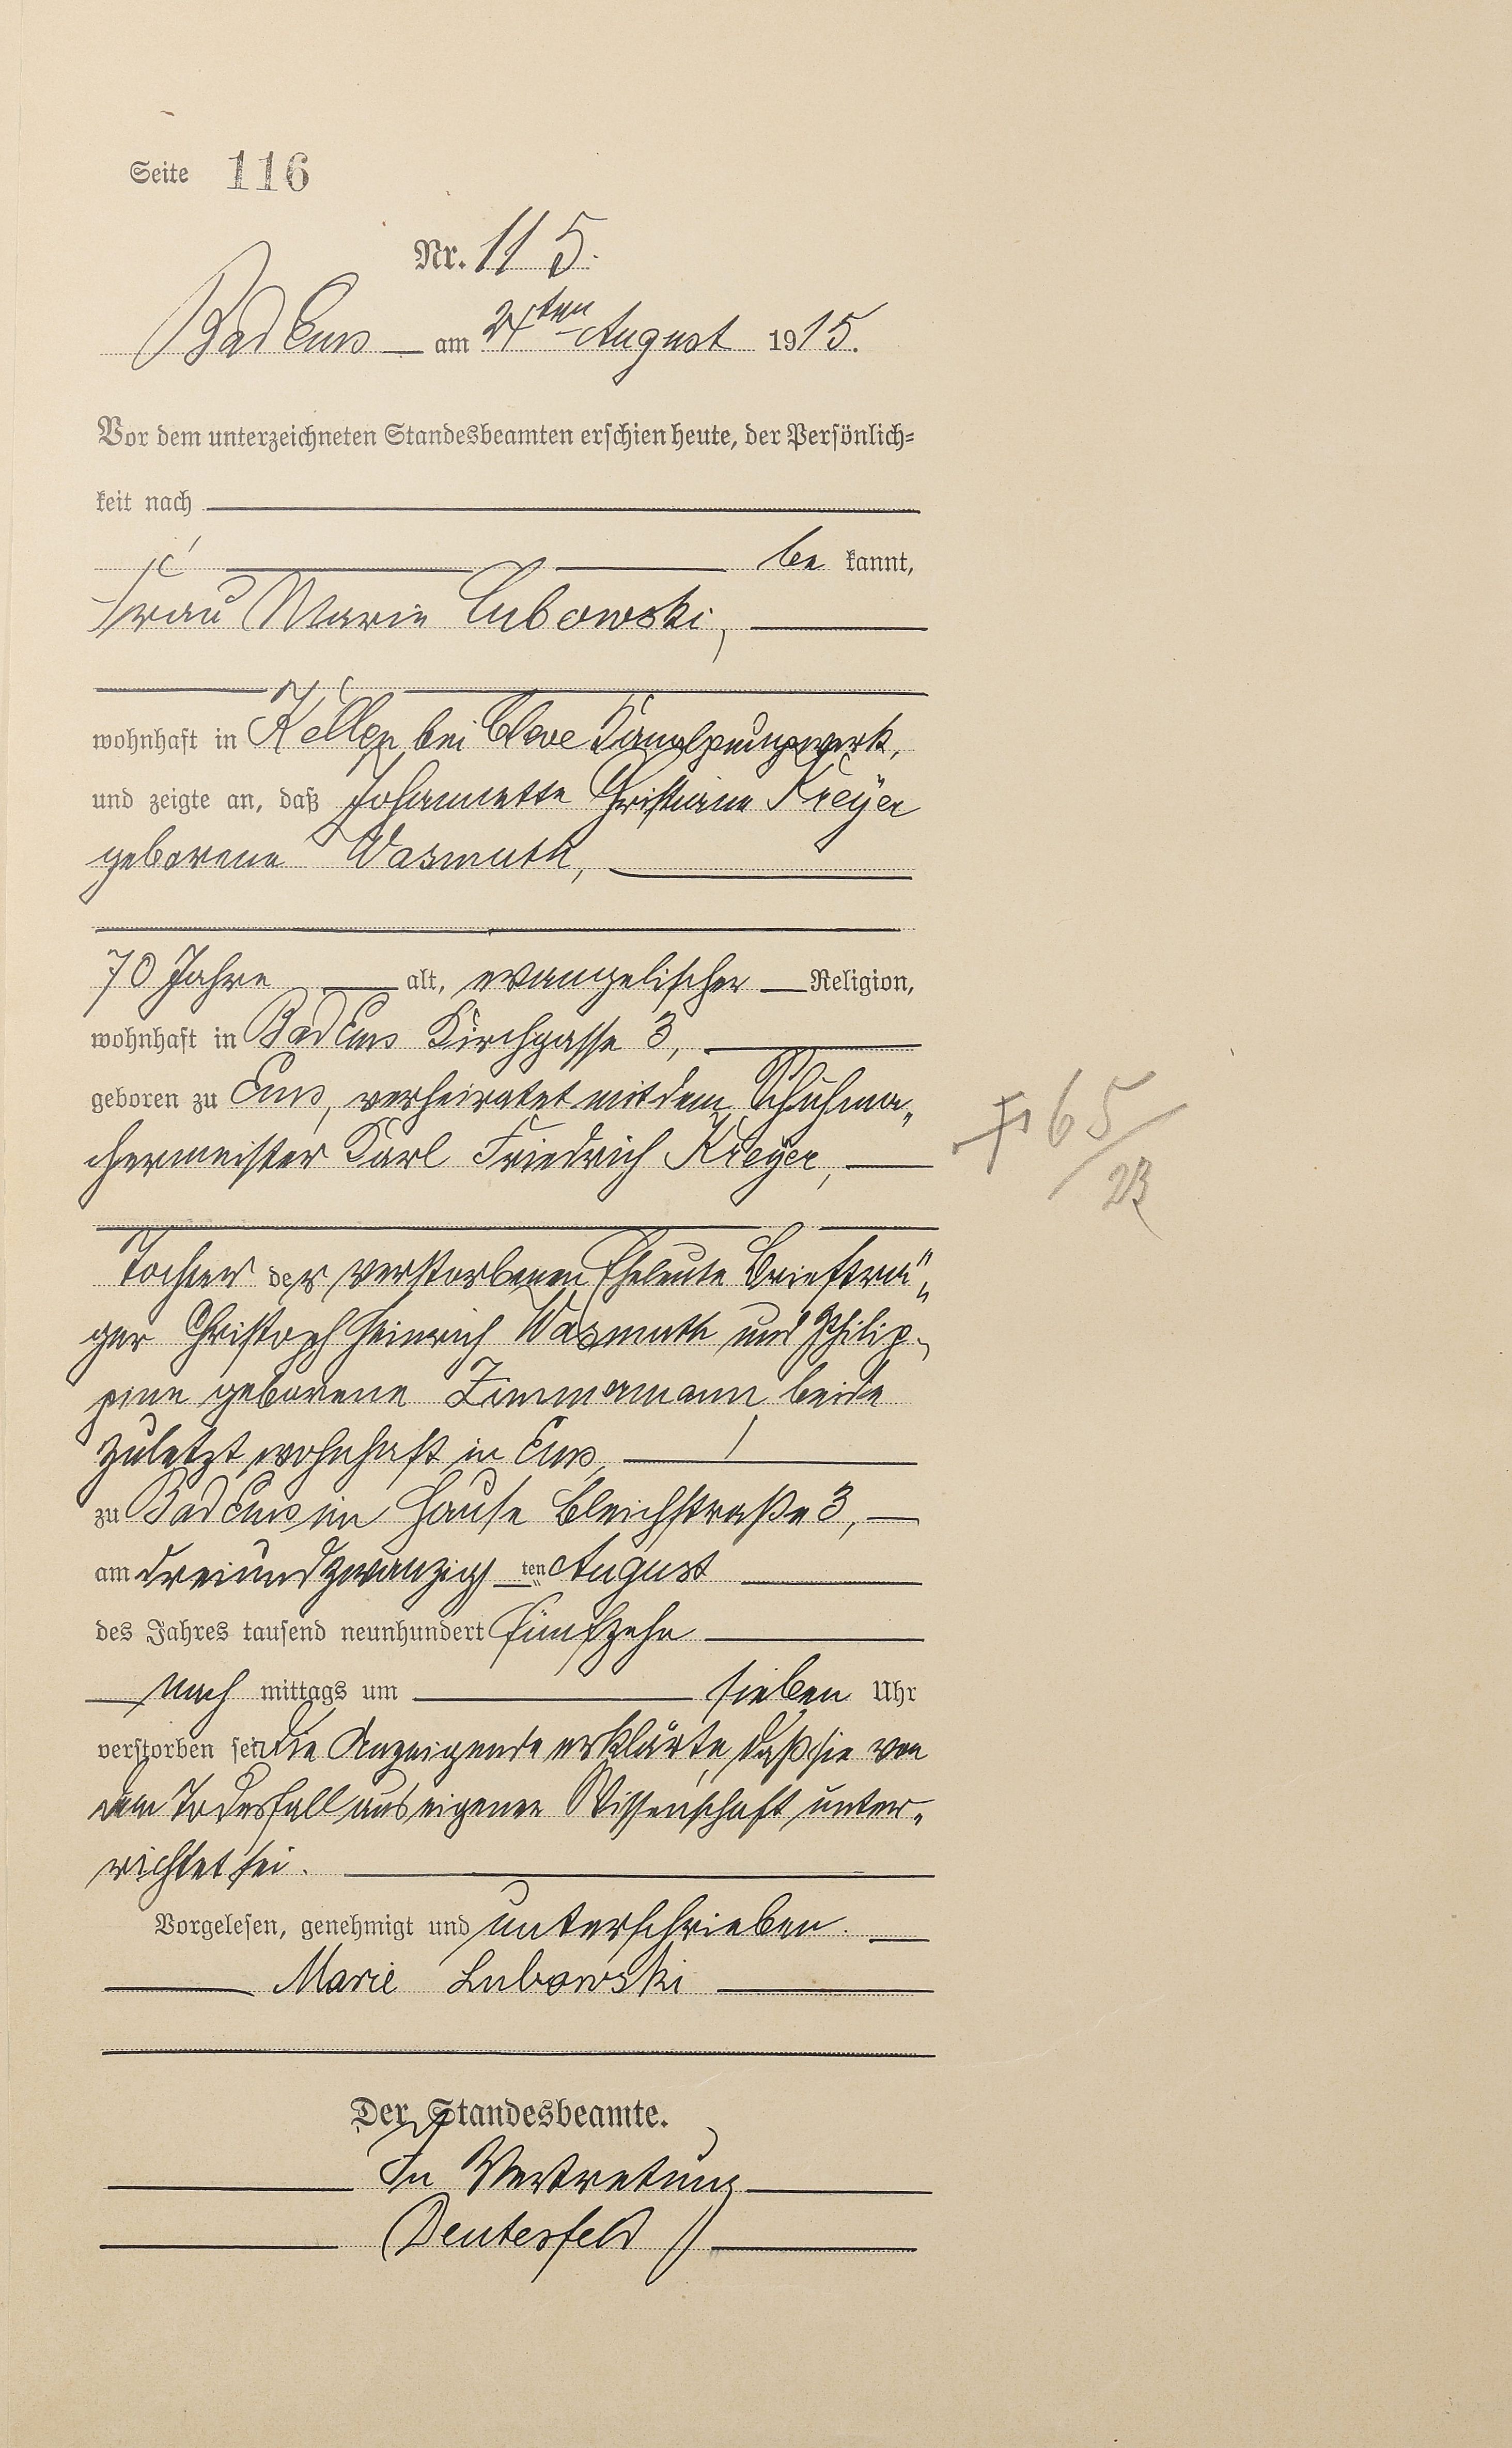 Seite 116
Nr. 115.
Bad Ems am 24ten August 1915.
Vor dem unterzeichneten Standesbeamten erschien heute, der Persönlich=
keit nach
be kannt,
Frau Marie Lubowski,
wohnhaft in Kellen bei Cleve Kanalpumpwerk,
und zeigte an, daß Johannette Christiane Kreÿer
geborene Wasmuth,
70 Jahre alt, evangelischer Religion,
wohnhaft in Bad Ems Kirchgasse 3,
geboren zu Ems, verheiratet mit dem Schuhma„
chermeister Karl Friedrich Kreÿer,
65
23
Tochter der verstorbenen Eheleute Briefträ„
ger Christoph Heinrich Wasmuth und Philip-
pine geborene Zimmermann beide
zuletzt wohnhaft in Ems,
zu Bad Ems im Hause Bleichstraße 3,
am dreiundzwanzig ten August
des Jahres tausend neunhundert fünfzehn
nach mittags um sieben Uhr
verstorben sei. Die Anzeigende erklärte, daß sie von
dem Todesfall aus eigener Wissenschaft unter„
richtet sei.
Vorgelesen, genehmigt und unterschrieben.
Marie Lubowski
Der Standesbeamte.
In Vertretung
Deutesfeld